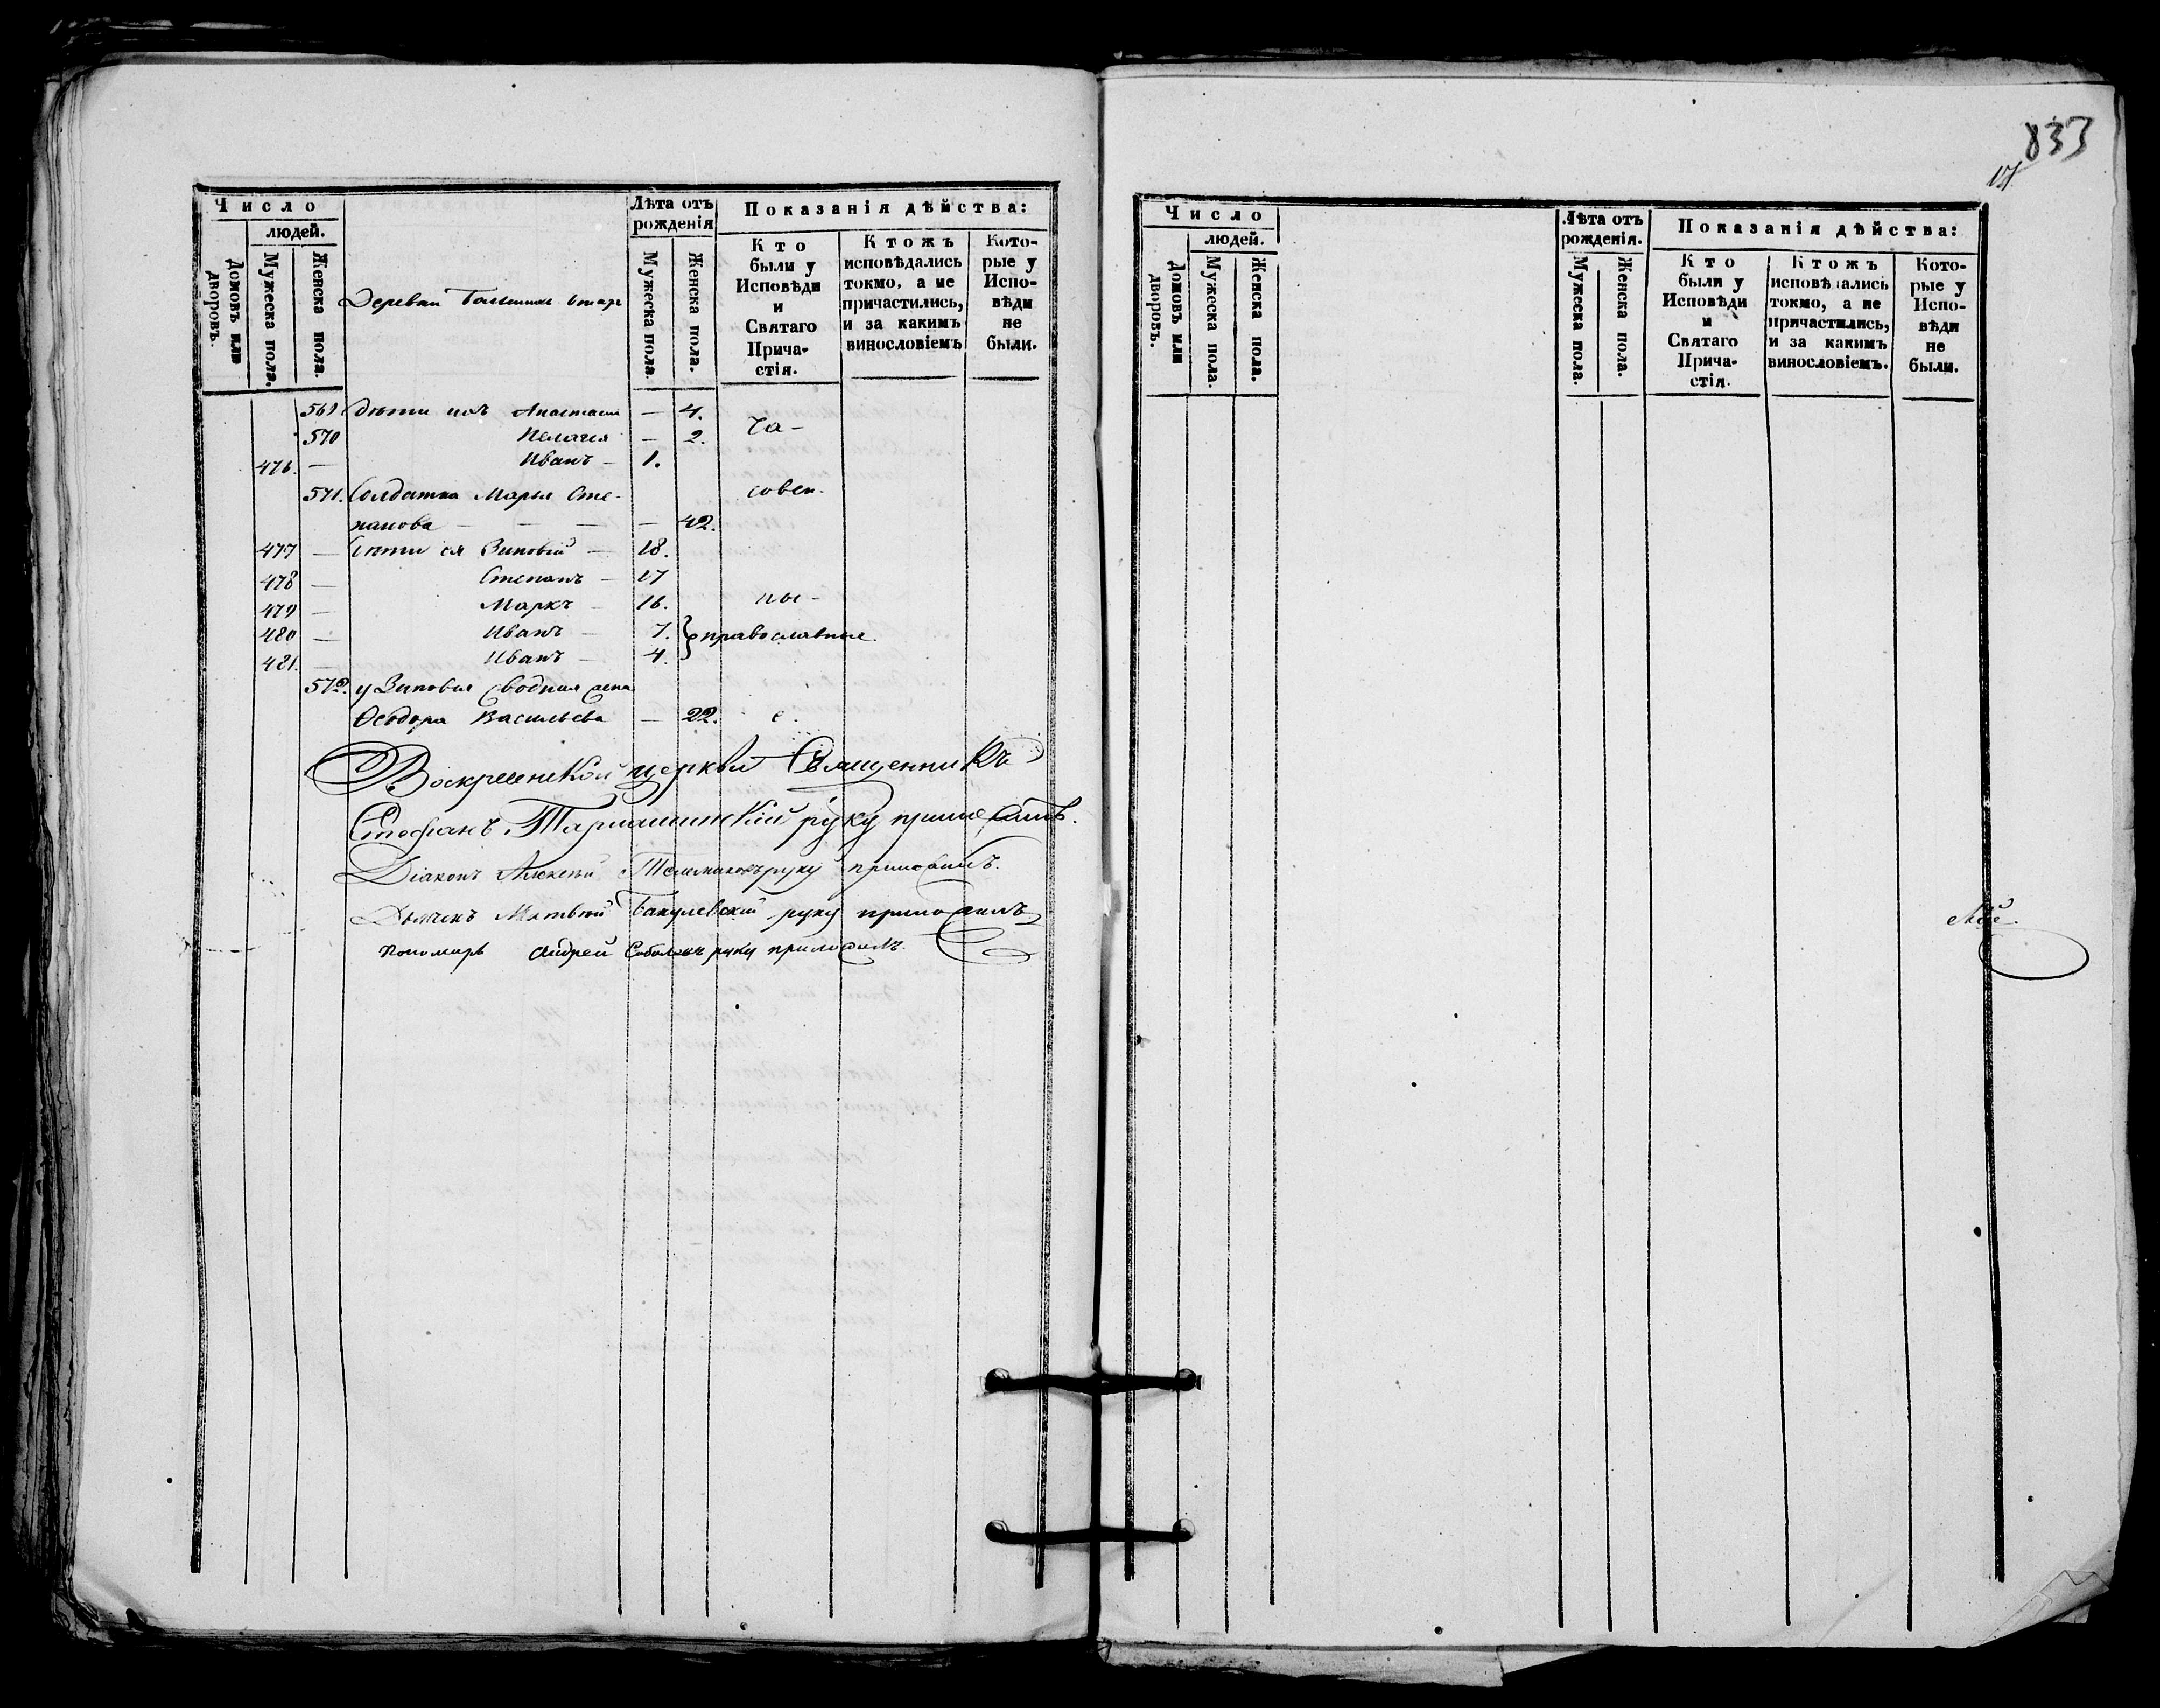 Число
людей.
Домовъ или дворовъ.
Мужеска пола.
Женска пола.
Деревни
Лѣта отъ рожденія
Мужеска пола.
Женска пола.
Показанія дѣйства:
Кто были у Исповѣди и Святаго Прича-стія.
Ктожъ исповѣдались токмо, а не причастились, и за какимъ винословіемъ
Кото-рые у Испо-вѣди не были.
569 Дѣти ихъ Анастасія — 4.
570 Пелагія — 2. Ча-
476. — Иванъ — 1.
571. Солдатка Марья Сте- совен-
панова — — — — 42.
477 — Дѣти ея Зиновій — 18.
478 — Степанъ — 17
479 — Маркъ — 16. ны-
480 — Иванъ — 7. } православные.
481. — Иванъ — 4.
572. у Зиновія сводная жена
Ѳеодора Васильева — 22. е.
Воскресенской церкви Священникъ
Стефанъ руку приложилъ.
Діаконъ Алексѣй руку приложилъ.
Дьячекъ Матвѣй Бакулевский руку приложилъ
Пономарь Андрей Соболевъ руку приложилъ.
833
Число
людей.
Домовъ или дворовъ.
Мужеска пола.
Женска пола.
Лѣта отъ рожденія.
Мужеска пола.
Женска пола.
Показанія дѣйства:
Кто были у Исповѣди и Святаго Прича-стія.
Ктожъ исповѣдались токмо, а не причастились, и за какимъ винословіемъ.
Кото-рые у Испо-вѣди не были.